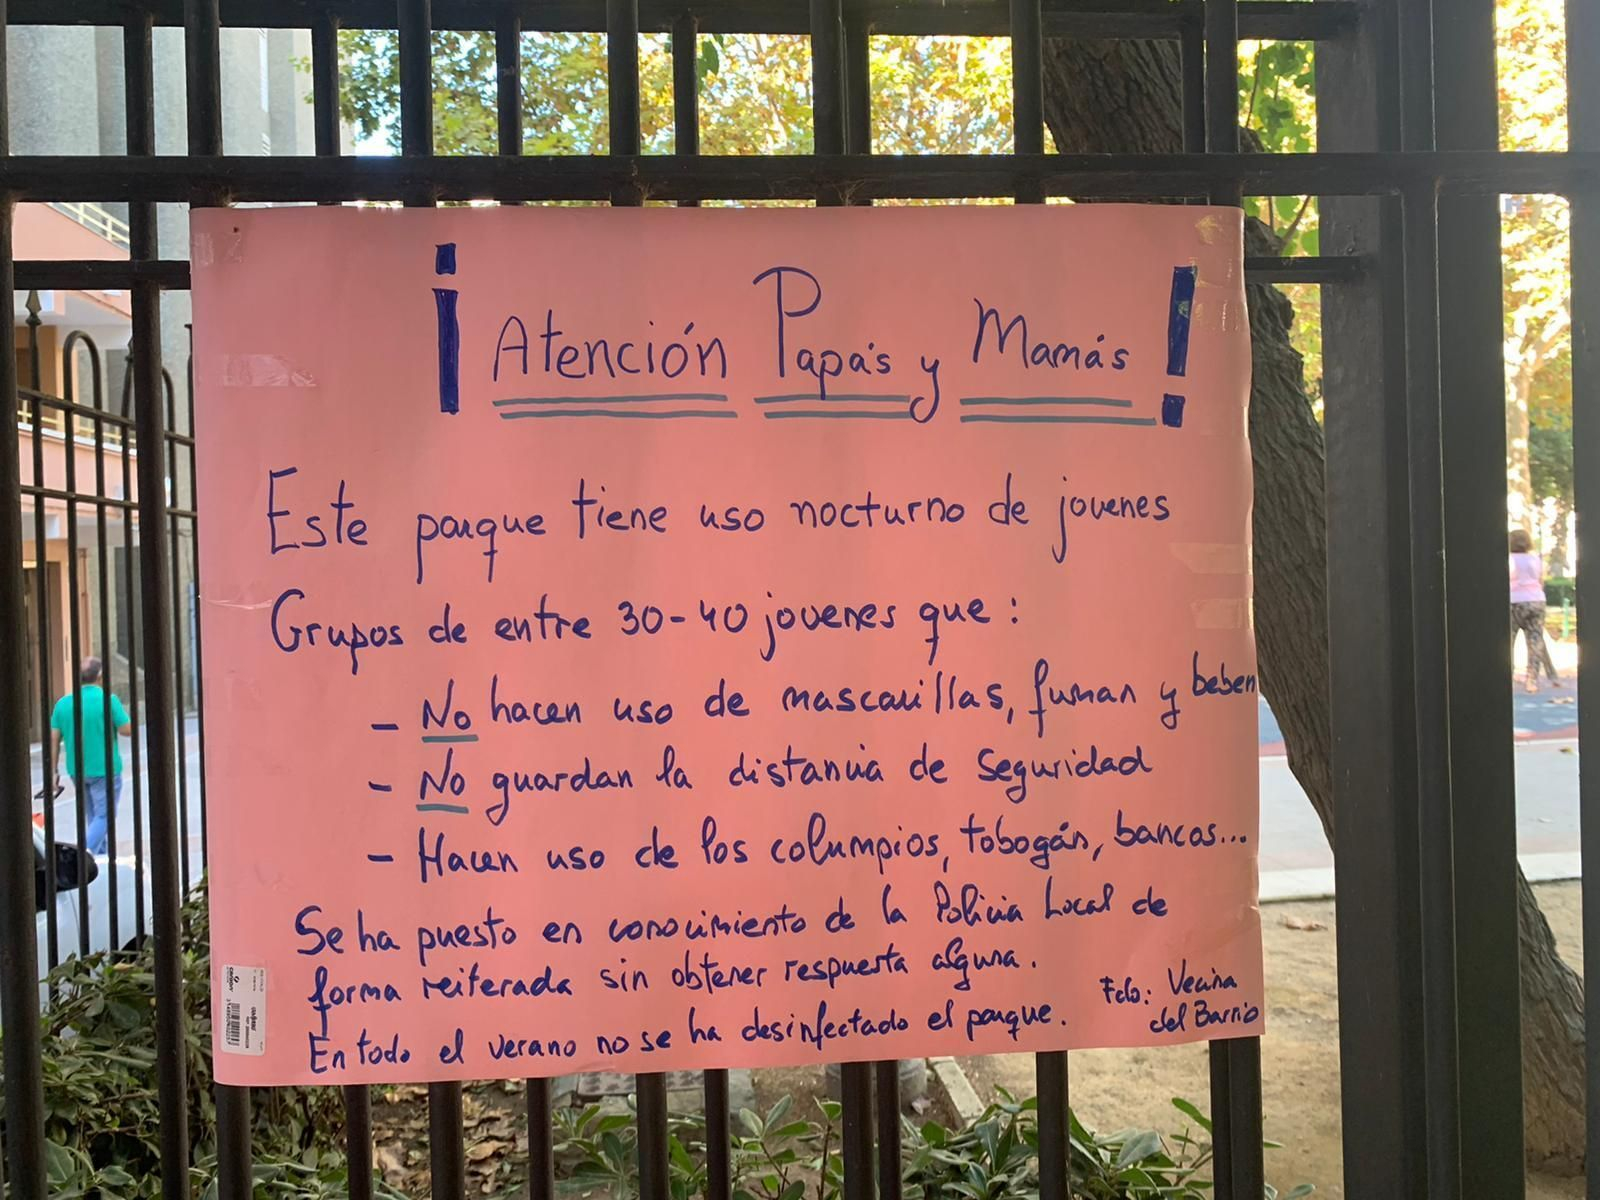 ¡Atención Papás y Mamás!
Este parque tiene uso nocturno de jovenes
Grupos de entre 30-40 jovenes que:
- No hacen uso de mascarillas, fuman y beben
- No guardan la distancia de seguridad
- Hacen uso de los columpios, tobogán, bancos...
Se ha puesto en conocimiento de la Policia Local de
forma reiterada sin obtener respuesta alguna.
En todo el verano no se ha desinfectado el parque.
Fdo: Vecina
del Barrio